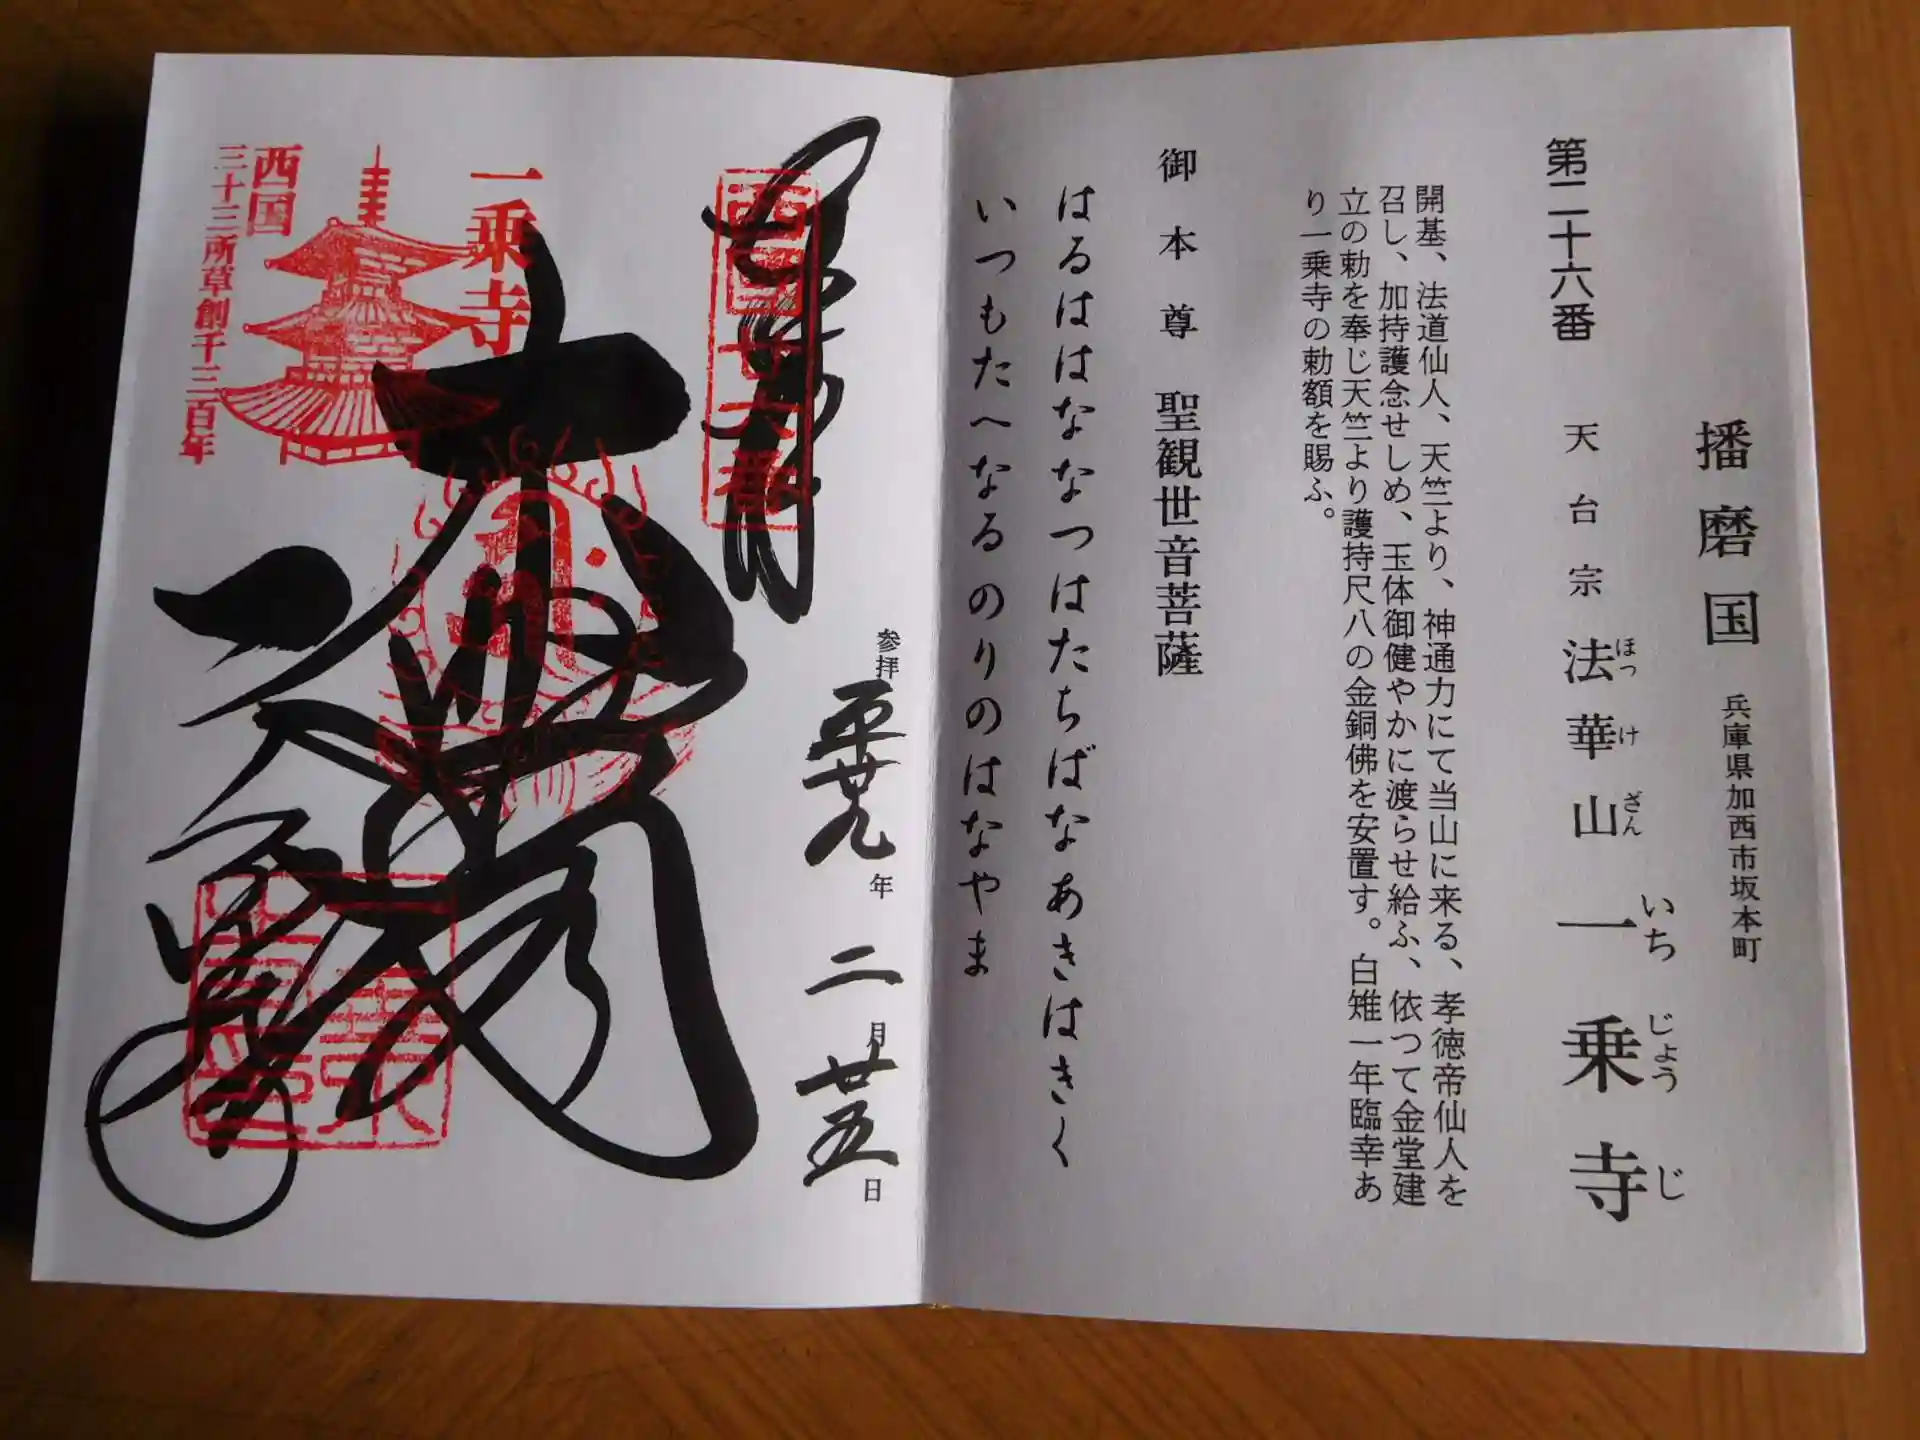 播磨国 兵庫県加西市坂本町
第二十六番 天台宗 法華山 一乗寺
ほつ け ざん いち じょう じ
開基、法道仙人、天竺より、神通力にて当山に来る、孝徳帝仙人を
召し、加持護念せしめ、玉体御健やかに渡らせ給ふ、依つて金堂建
立の勅を奉じ天竺より護持尺八の金銅佛を安置す。白雉一年臨幸あ
り一乗寺の勅額を賜ふ。
御本尊 聖観世音菩薩
はるははななつはたちばなあきはきく
いつもたへなるのりのはなやま
西国廿六番
参拝 平廿九年 二月 廿五日
一乗寺
西国
三十三所草創千三百年